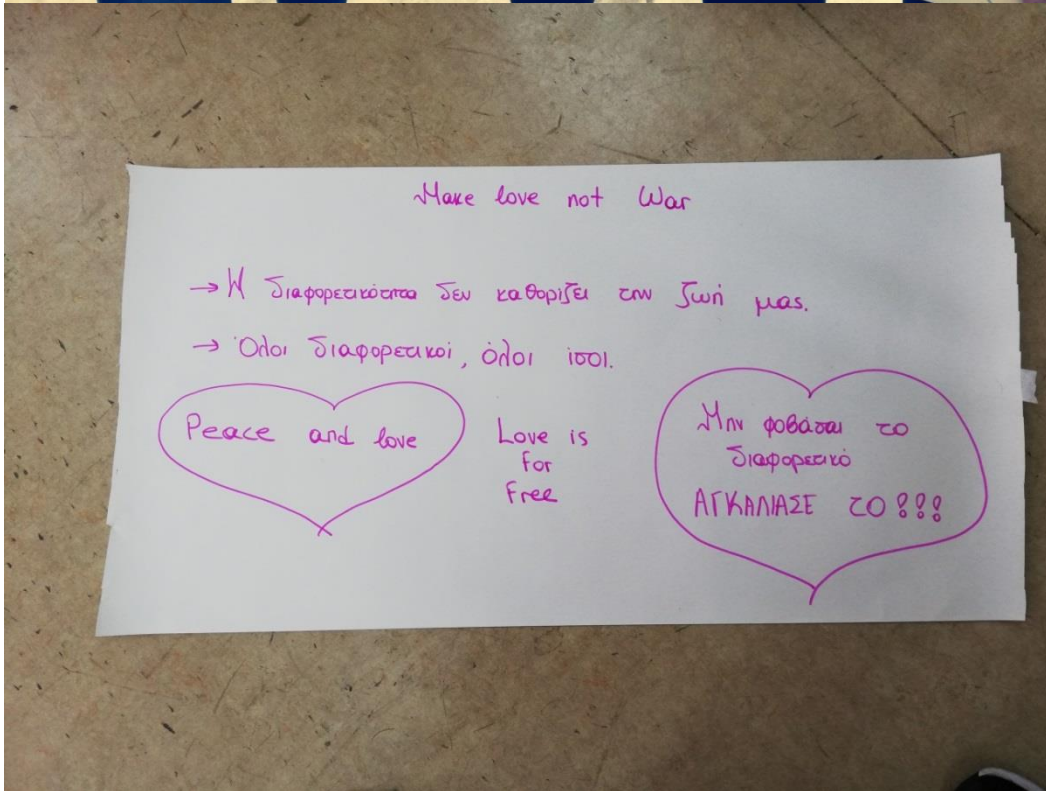 Make love not War
→ Η διαφορετικότητα δεν καθορίζει την ζωή μας.
→ Όλοι διαφορετικοί, όλοι ίσοι.
Peace and love
Love is
for
free
Μην φοβάσαι το
διαφορετικό
ΑΓΚΑΛΙΑΣΕ το!!!